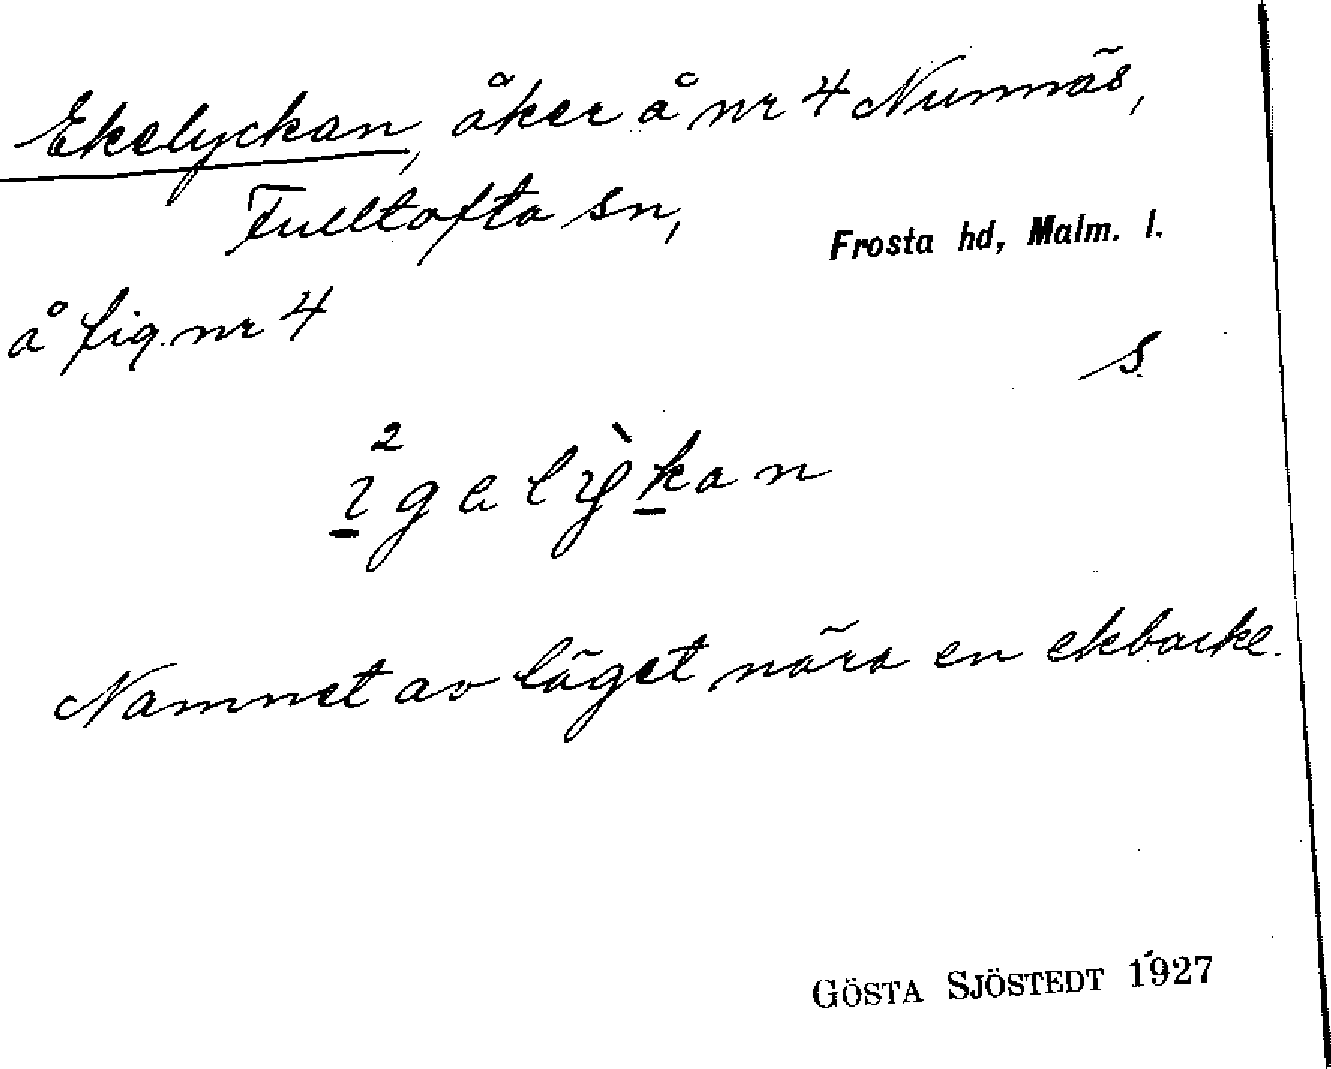 Ekelyckan, åker å nr 4 Nunnäs,
Fulltofta sn,
Frosta hd, Malm. l.
å fig. nr 4
S.
Namnet av läget nära en ekbacke.
GÖSTA SJÖSTEDT 1927